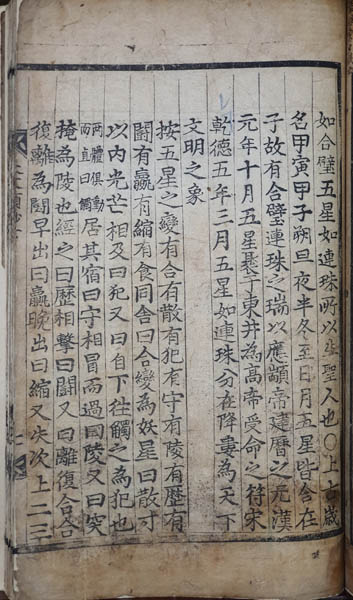 如合璧五星如連珠所以生聖人也○上古歲
名甲寅甲子朔旦夜半冬至日月五星皆合在
子故有合璧連珠之瑞以應顓帝建曆之元漢
元年十月五星聚于東井為高帝受命之符宋
乾德五年三月五星如連珠分在降婁為天下
文明之象
按五星之變有合有散有犯有守有陵有歷有
鬪有贏有縮有食同舍曰合變為妖星曰散寸
以內光芒相及曰犯又曰自下往觸之為犯也
兩體俱動
而直曰觸
居其宿曰守相冒而過曰陵又曰突
掩為陵也經之曰歷相擊曰鬪又曰離復合合
復離為鬪早出曰贏晚出曰縮又失次上二三